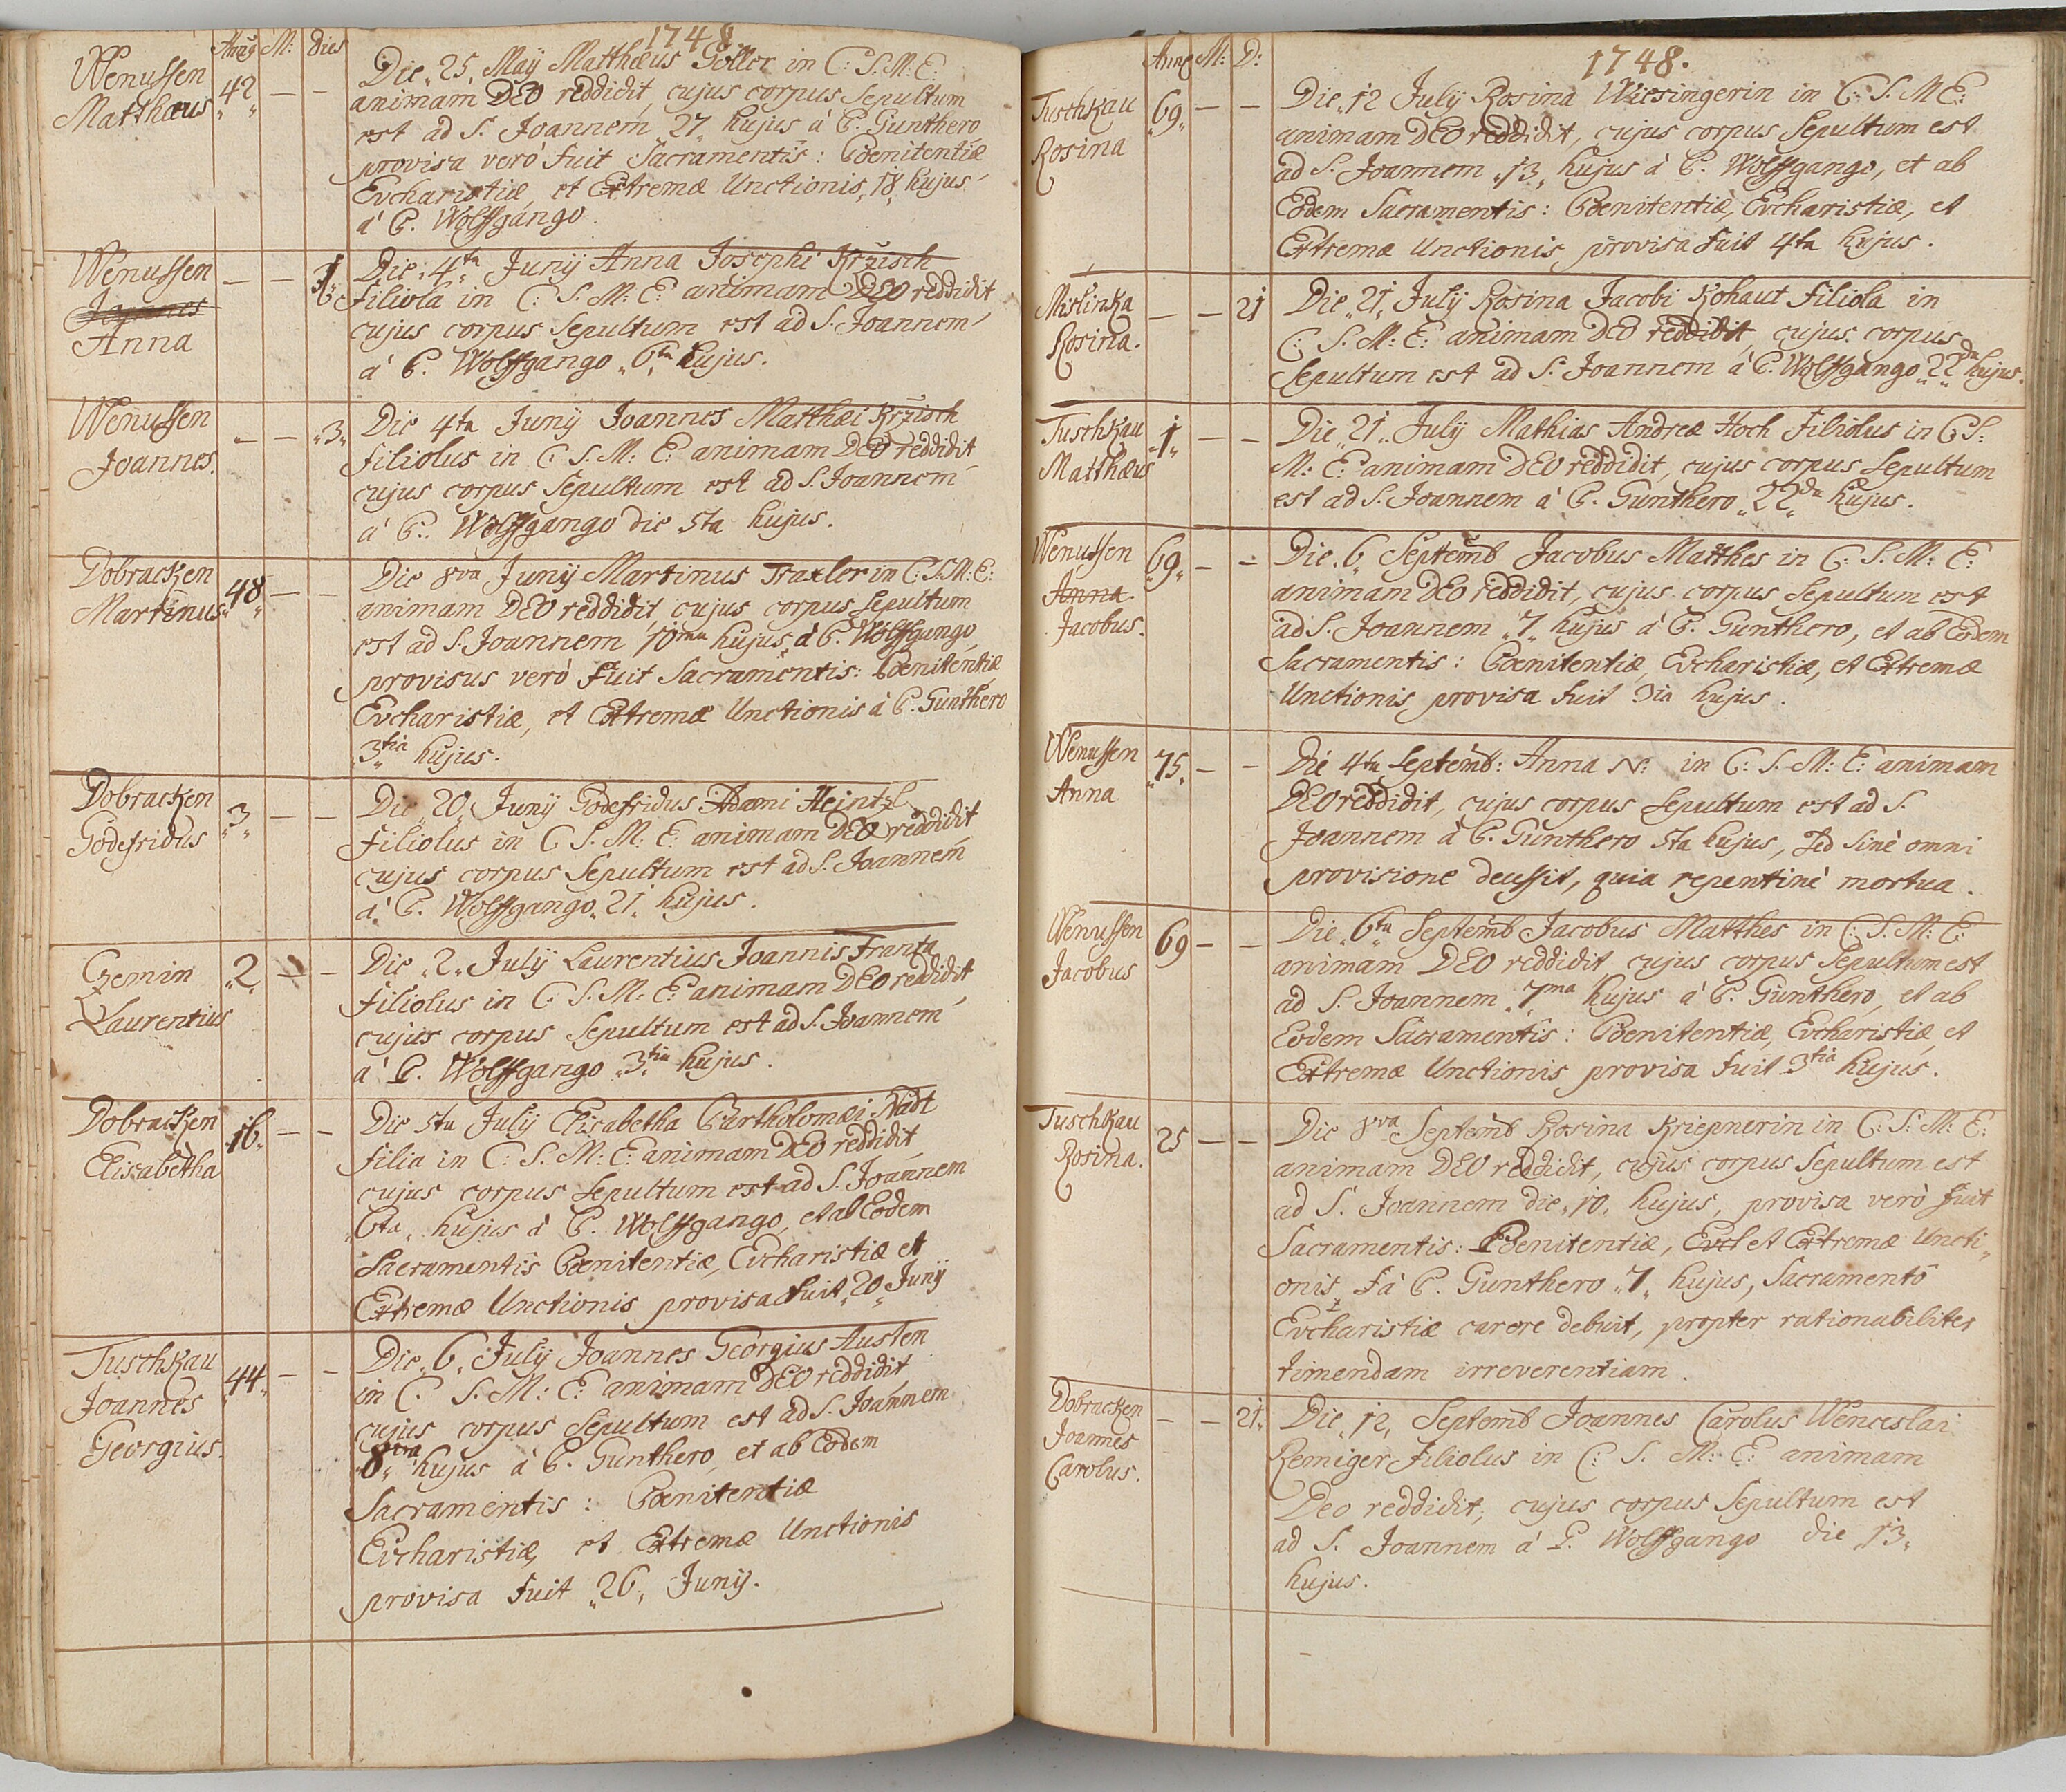 1748
Annȳ M: Dies
Wenussen
Matthæus
„42„ — –
Die „25„ Maÿ Matthæus Göller in C: S. M: E:
animam DEO reddidit, cujus corpus Sepultum
est ad S. Joannem „27„ hujus à P. Gunthero,
provisa verò fuit Sacramentis: Poenitentiæ
Evcharistiæ, et Extremæ Unctionis, 18 hujus
à P. Wolffgango
Wenussen
Joannes
Anna
— —
Die „4ta„ Junÿ Anna Josephi Kržisch
filiola in C: S. M: E: animam DEO reddidit
cujus corpus Sepultum est ad S. Joannem
à P. Wolffgango „6ta„ hujus.
Wenussen
Joannes.
– — „3„
Die 4ta Junÿ Joannes Matthæi Kržisch
filiolus in C S. M: E: animam DEO reddidit
cujus corpus Sepultum est ad S. Joannem
à P. Wolffgango die 5ta hujus.
Dobracken
Martinus
„48„ — –
Die 8va Junÿ Martinus Traxler in C: S. M: E:
animam DEO reddidit, cujus corpus Sepultum
est ad S. Joannem 10ma hujus à P. Wolffgango,
provisus verò fuit Sacramentis: Poenitentiæ
Evcharistiæ, et Extremæ Unctionis à P. Gunthero
„3tia„ hujus.
Dobracken
Godefridus
„3„ — —
Die „20„ Junÿ Godefridus Adami Heintzl
filiolus in C S. M: E: animam DEO reddidit
cujus corpus Sepultum est ad S. Joannem
à P. Wolffgango „21„ hujus.
Czemin
Laurentius
„2„ — –
Die „2„ Julÿ Laurentius Joannis Franta
filiolus in C. S. M: E: animam DEO reddidit,
cujus corpus Sepultum est ad S. Joannem
à P. Wolffgango „3tia„ hujus.
Dobracken
Elisabetha
„16„ — –
Die 5ta Julÿ Elisabetha Bartholomæi Nädt
filia in C: S. M: E: animam DEO reddidit,
cujus corpus Sepultum est ad S. Joannem
„6ta„ hujus à P. Wolffgango, et ab Eodem
Sacramentis Poenitentiæ, Evcharistiæ et
Extremæ Unctionis provisa fuit „20„ Junÿ
Tuschkau
Joannes
Georgius.
„44„ — –
Die „6„ Julÿ Joannes Georgius Austen
in C. S. M: E: animam DEO reddidit,
cujus corpus Sepultum est ad S. Joannem
„8va„ hujus à P. Gunthero, et ab Eodem
Sacramentis: Poenitentiæ
Evcharistiæ, et Extremæ Unctionis
provisa fuit „26„ Junÿ.
1748.
Anny M: D:
Tuschkau
Rosina
„69„ — —
Die „12 Julÿ Rosina Wiesingerin in C: S. M E:
animam DEO reddidit, cujus corpus Sepultum est
ad S. Joannem „13„ hujus à P. Wolffgango, et ab
Eodem Sacramentis: Poenitentiæ, Evcharistiæ, et
Extremæ Unctionis, provisa fuit 4ta hujus.
Mislinka
Rosina.
— — 21
Die „21„ Julÿ Rosina Jacobi Kohaut filiola in
C: S. M: E: animam DEO reddidit, cujus corpus
Sepultum est ad S. Joannem à P. Wolffgango „22da„ hujus.
Tuschkau
Matthæus
„1„ — –
Die „21„ Julÿ Mathias Andreæ Hoch filiolus in C S:
M: E: animam DEO reddidit, cujus corpus Sepultum
est ad S. Joannem à P. Gunthero „22da„ hujus.
Wenussen
Anna.
Jacobus.
„69„ — –
Die „6„ Septemb Jacobus Matthes in C: S. M: E:
animam DEO reddidit, cujus corpus Sepultum est
ad S. Joannem „7„ hujus à P. Gunthero, et ab Eodem
Sacramentis: Poenitentiæ, Evcharistiæ, et Extremæ
Unctionis, provisa fuit 3ia hujus.
Wenussen
Anna
„75„ — —
Die 4ta Septemb: Anna N: in C: S. M: E: animam
DEO reddidit, cujus corpus Sepultum est ad S.
Joannem à P. Gunthero 5ta hujus, Sed sinè omni
provisione decessit, quia repentinè mortua.
Wenussen
Jacobus
69 — –
Die „6ta„ Septemb Jacobus Matthes in C: S. M: E:
animam DEO reddidit, cujus corpus Sepultum est
ad S. Joannem „7ma hujus à P. Gunthero, et ab
Eodem Sacramentis: Poenitentiæ, Evcharistiæ, et
Extremæ Unctionis provisa fuit 3tia hujus.
Tuschkau
Rosina.
25 — —
Die 8va Septemb Rosina Kriepnerin in C: S: M: E:
animam DEO reddidit, cujus corpus Sepultum est
ad S. Joannem die „10„ hujus, provisa verò fuit
Sacramentis: Poenitentiæ, Evch et Extremæ Uncti„
onis à P. Gunthero „7„ hujus, Sacramentô
Evcharistiæ carere debuit, propter rationabiliter
timendam irreverentiam.
Dobracken
Joannes
Carolus.
— — 21„
Die „12„ Septemb Joannes Carolus Wenceslai
Remiger filiolus in C: S. M: E: animam
Deo reddidit, cujus corpus Sepultum est
ad S. Joannem à P. Wolffgango die „13„
hujus.